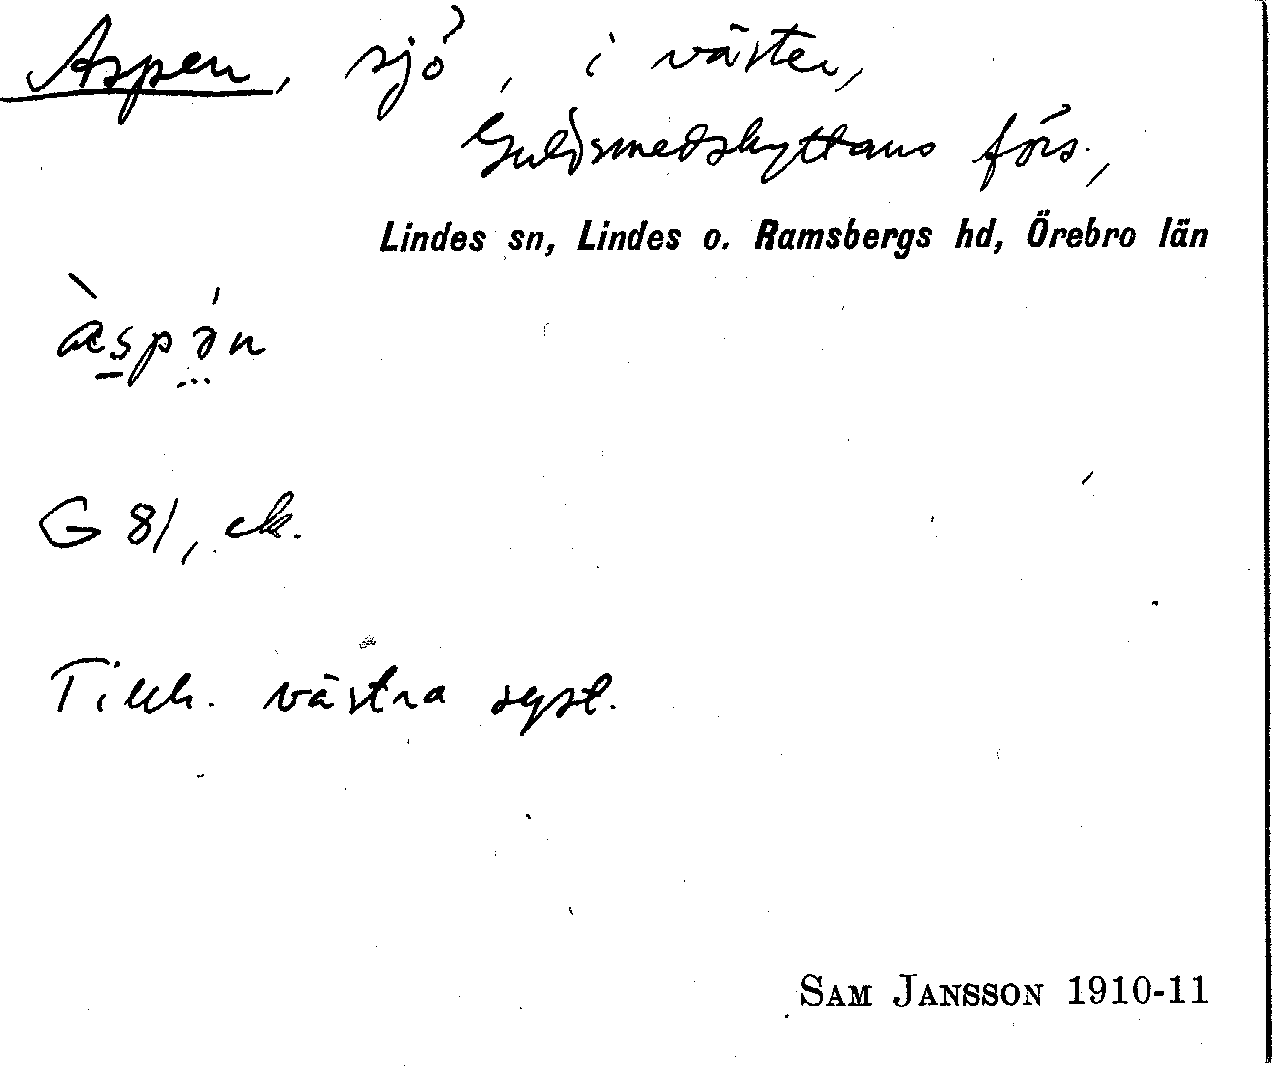 Aspen, sjö, i väster,
Guldsmedshyttans förs.,
Lindes sn, Lindes o. Ramsbergs hd, Örebro län
àspə́n
G 81, ek.
Tillh. västra syst.
SAM JANSSON 1910-11